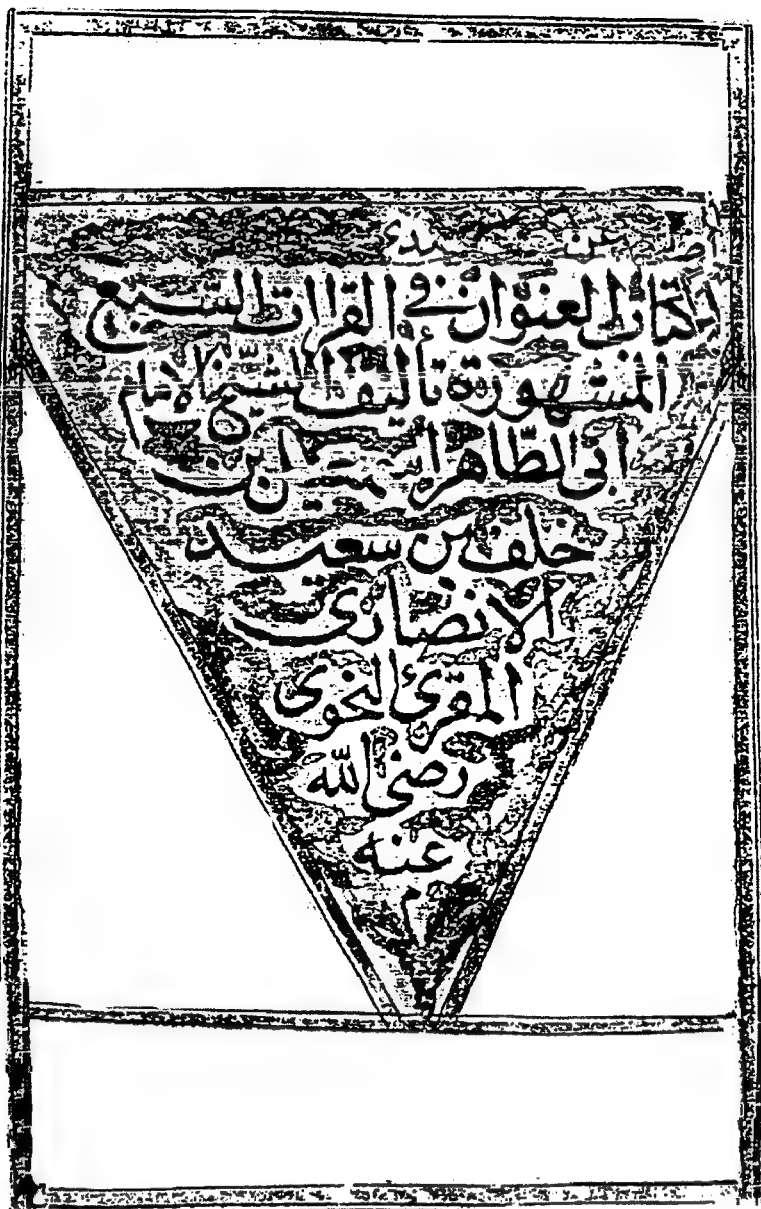 كتاب العنوان في القراات السبع
المشهورة تأليف الشيخ الامام
أبى الطّاهر اسمعيل بن
خلف بن سعيد
الانصارى
المقرئ النحوى
رضى الله
عنه
م